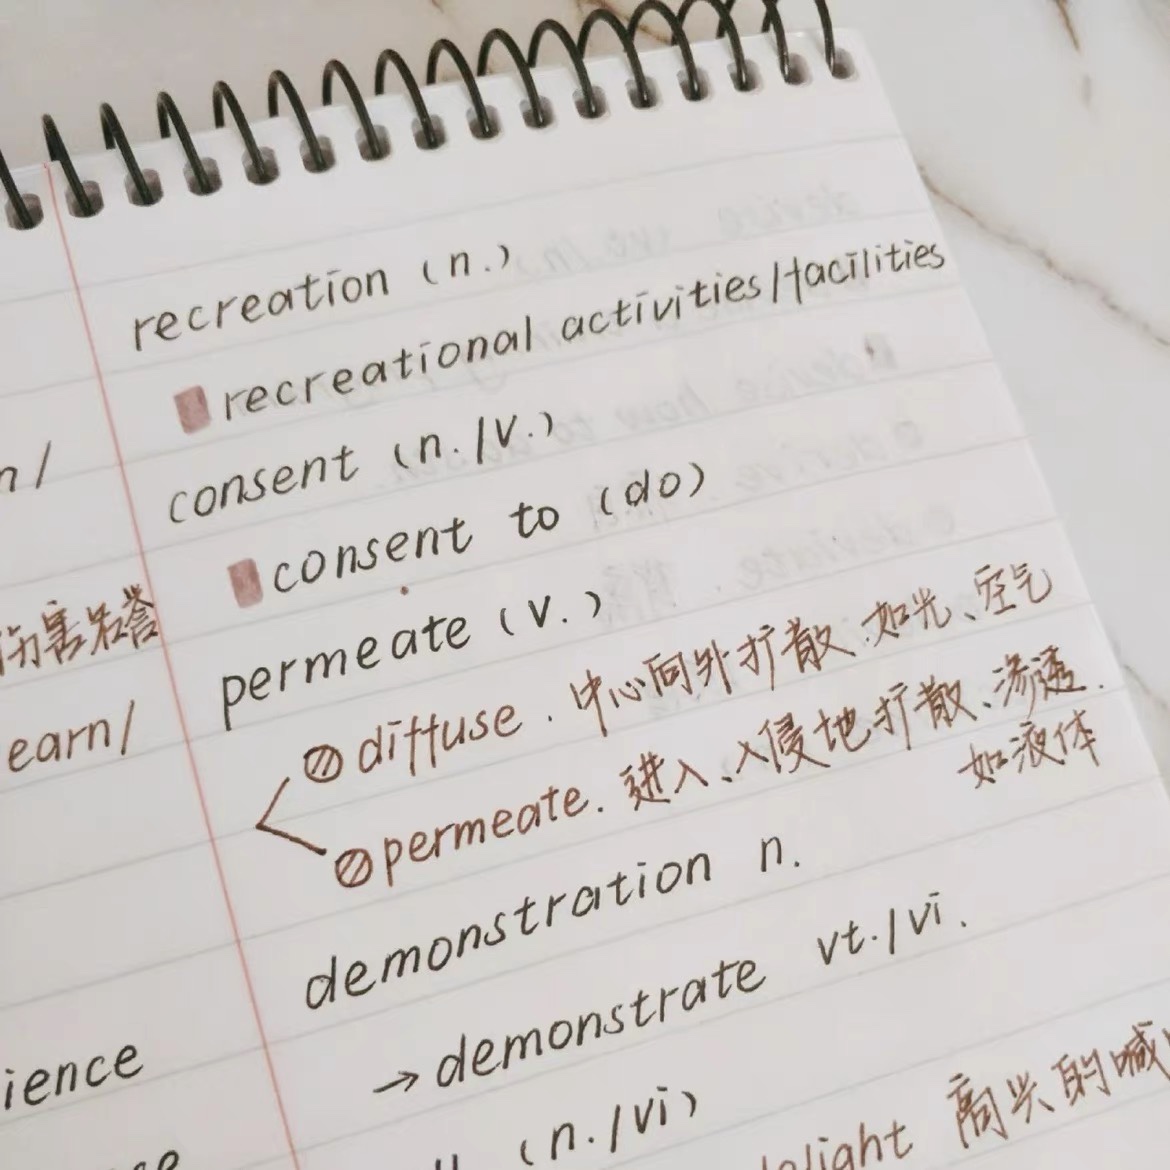 recreation (n.)
recreational activities/facilities
n/
consent (n./v.)
consent to (do)
伤害名誉
permeate (v.)
earn/
diffuse. 中心向外扩散.如光、空气
permeate. 进入、入侵地扩散、渗透.
如液体
demonstration n.
→demonstrate vt./vi.
ience
(n./vi)
light 高兴的喊